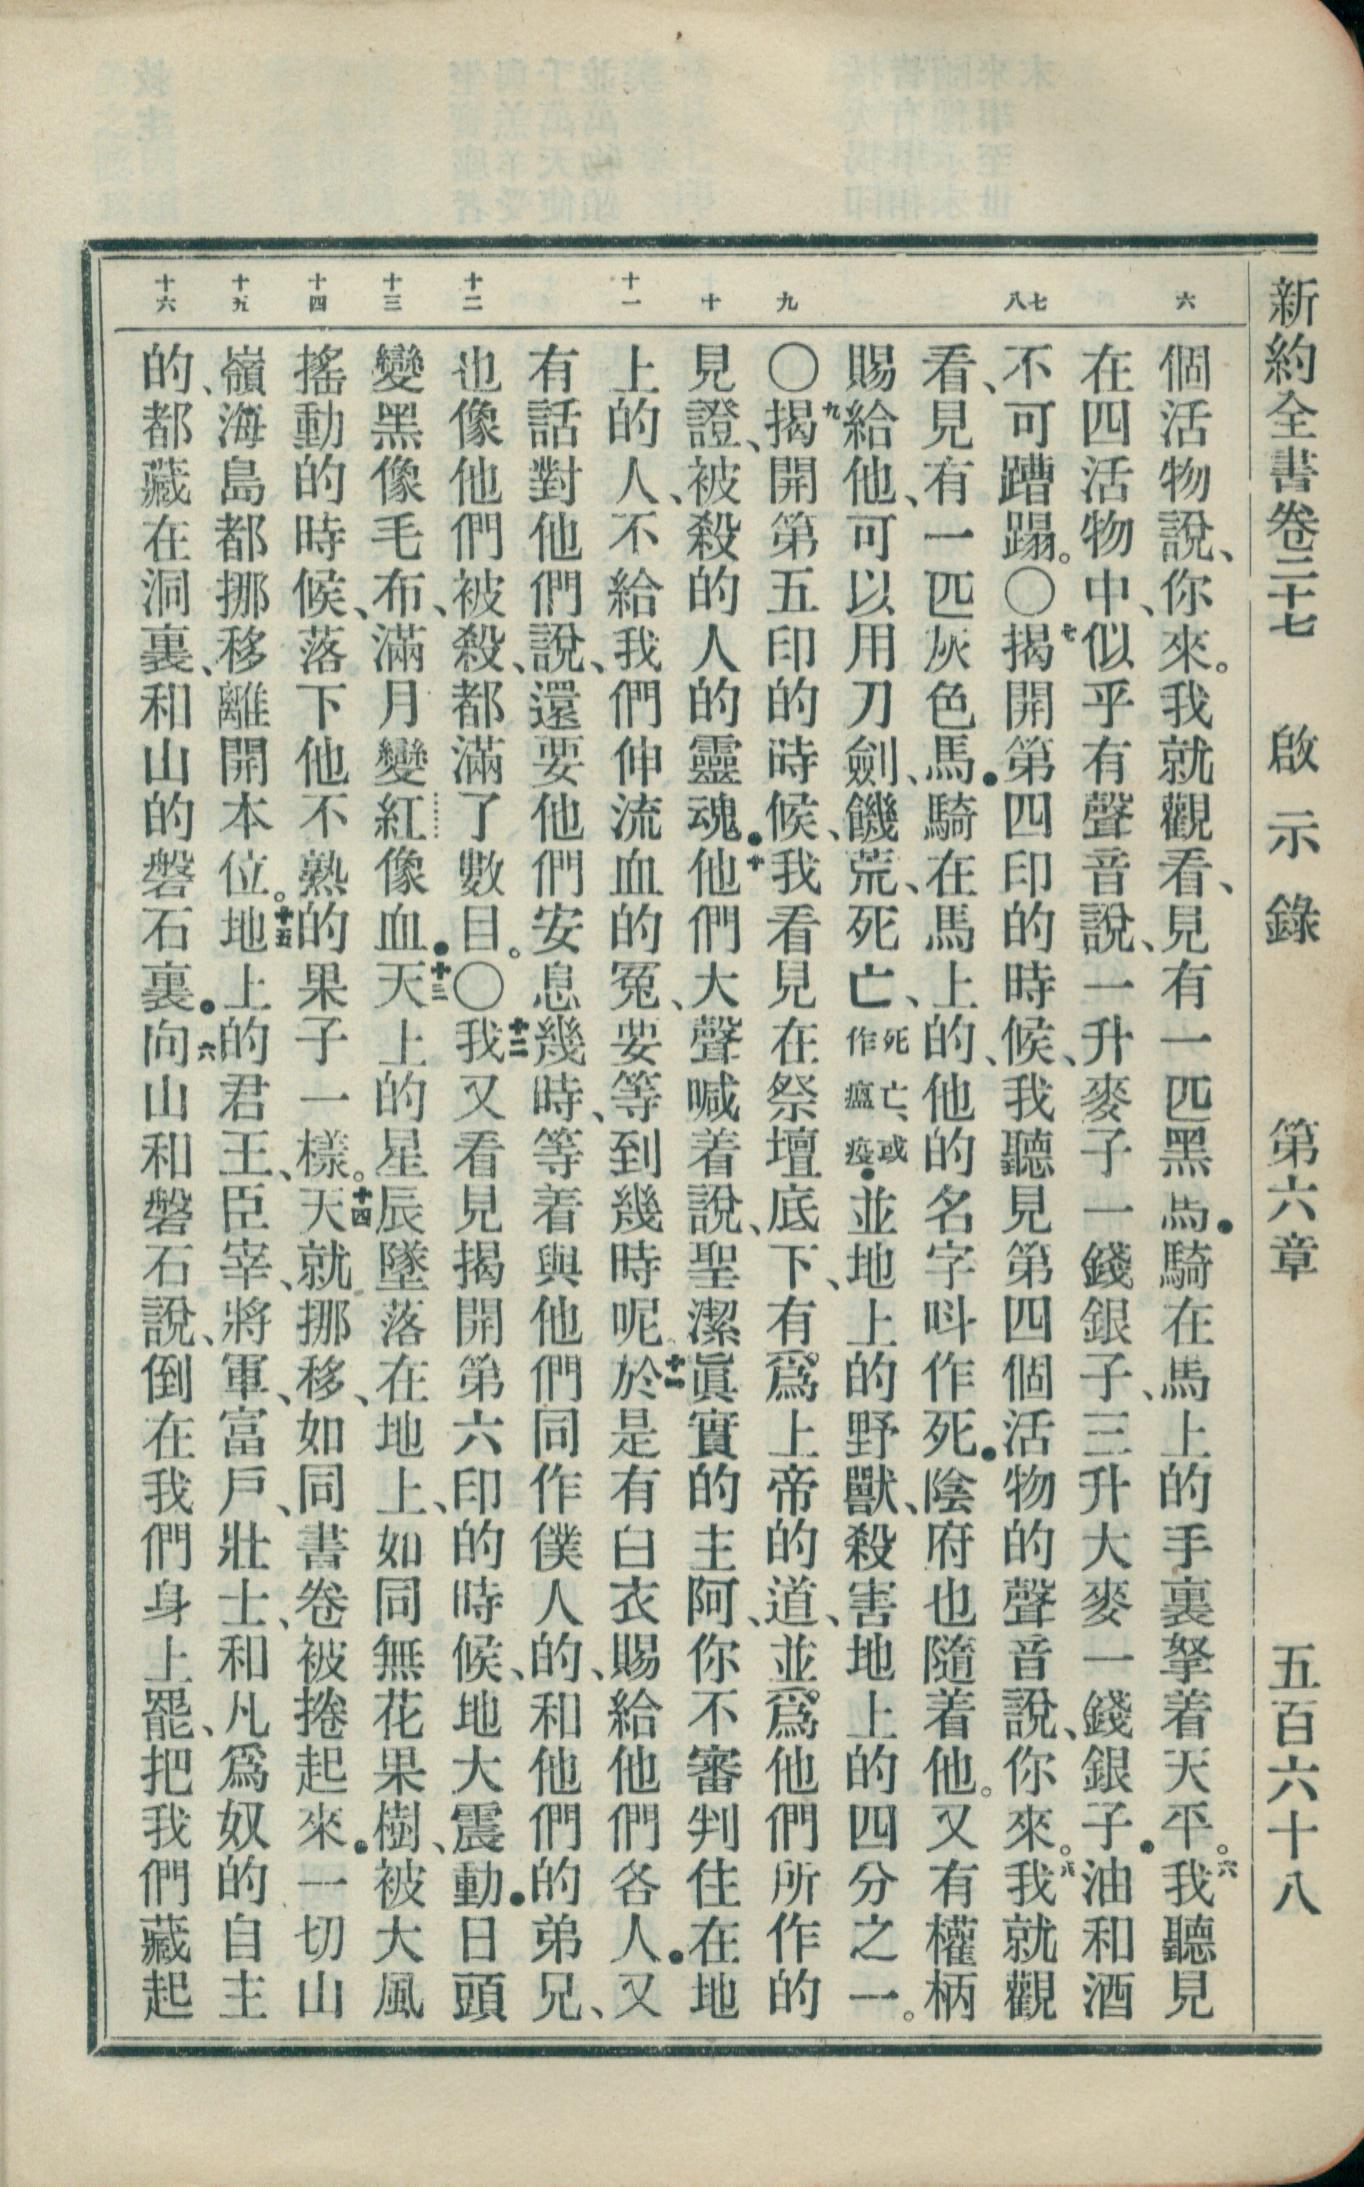 新約全書卷二十七 啟示錄 第六章 五百六十八
六
七
八
九
十
十一
十二
十三
十四
十五
十六
個活物說、你來。我就觀看、見有一匹黑馬．騎在馬上的手裏拏着天平。六我聽見
在四活物中、似乎有聲音說、一升麥子一錢銀子、三升大麥一錢銀子．油和酒
不可蹧蹋。〇七揭開第四印的時候、我聽見第四個活物的聲音說、你來。八我就觀
看、見有一匹灰色馬．騎在馬上的、他的名字呌作死．陰府也隨着他。又有權柄
賜給他、可以用刀劍、饑荒、死亡、死亡、或作瘟疫．並地上的野獸、殺害地上的四分之一。
〇九揭開第五印的時候、我看見在祭壇底下、有爲上帝的道、並爲他們所作的
見證、被殺的人的靈魂．十他們大聲喊着說、聖潔眞實的主阿、你不審判住在地
上的人、不給我們伸流血的冤、要等到幾時呢。十一於是有白衣賜給他們各人．又
有話對他們說、還要他們安息幾時、等着與他們同作僕人的、和他們的弟兄、
也像他們被殺、都滿了數目。〇十二我又看見揭開第六印的時候、地大震動．日頭
變黑像毛布、滿月變紅像血．十三天上的星辰墜落在地上、如同無花果樹、被大風
搖動的時候、落下他不熟的果子一樣。十四天就挪移、如同書卷被捲起來．一切山
嶺海島都挪移離開本位。十五地上的君王、臣宰、將軍、富戶、壯士、和凡爲奴的自主
的、都藏在洞裏、和山的磐石裏．六向山和磐石說、倒在我們身上罷、把我們藏起